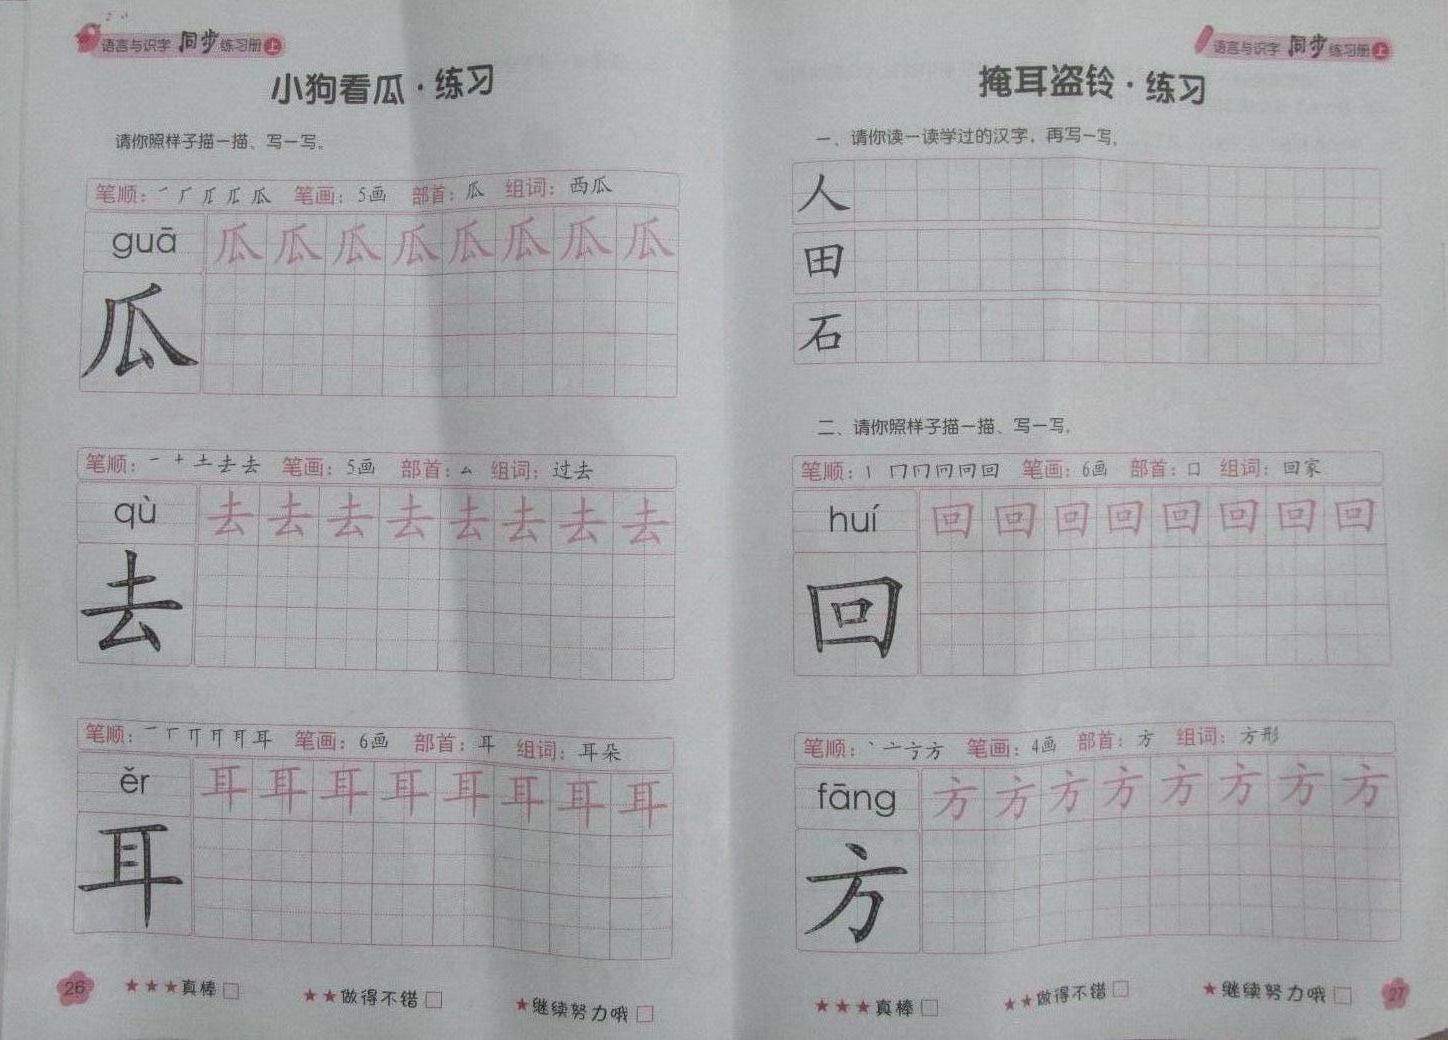 语言与识字 同步 练习册 上
小狗看瓜·练习
请你照样子描一描、写一写。
笔顺： 笔画：5画 部首：瓜 组词：西瓜
guā 瓜 瓜 瓜 瓜 瓜 瓜 瓜 瓜
瓜
笔顺：一 十 土 去 去 笔画：5画 部首：厶 组词：过去
qù 去 去 去 去 去 去 去 去
去
笔顺： 耳 笔画：6画 部首：耳 组词：耳朵
ěr 耳 耳 耳 耳 耳 耳 耳 耳
耳
26 ★★★真棒□ ★★做得不错□ ★继续努力哦□
语言与识字 同步 练习册 上
掩耳盗铃·练习
一、请你读一读学过的汉字，再写一写。
人
田
石
二、请你照样子描一描、写一写。
笔顺：丨 冂 冂 冋 回 回 笔画：6画 部首：口 组词：回家
huí 回 回 回 回 回 回 回 回
回
笔顺：丶 亠 方 方 笔画：4画 部首：方 组词：方形
fāng 方 方 方 方 方 方 方 方
方
★★★真棒□ ★★做得不错□ ★继续努力哦□ 27